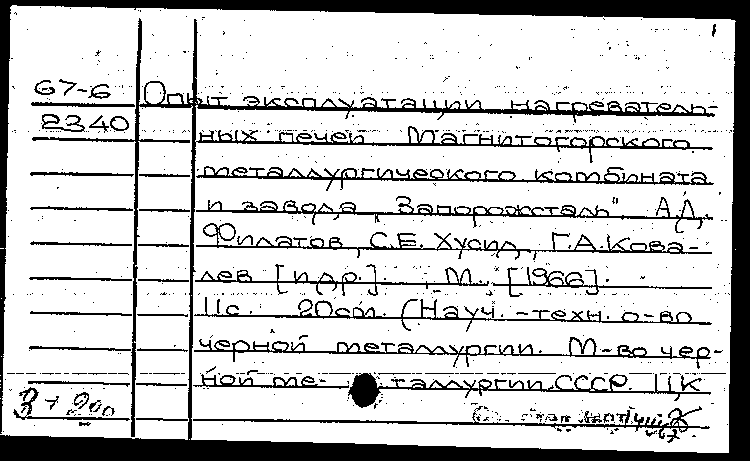 1
67-6 Опыт эксплуатации нагреватель-
2340 ных печей Магнитогорского
металлургического комбината
и завода „Запорожсталь". А.Д.
Филатов, С.Е. Хусид, Г.А. Кова-
лев [и др.]. М., [1966].
11с. 20см. (Науч.-техн. о-во
черной металлургии. М-во чер-
ной ме- таллургии СССР. ЦК